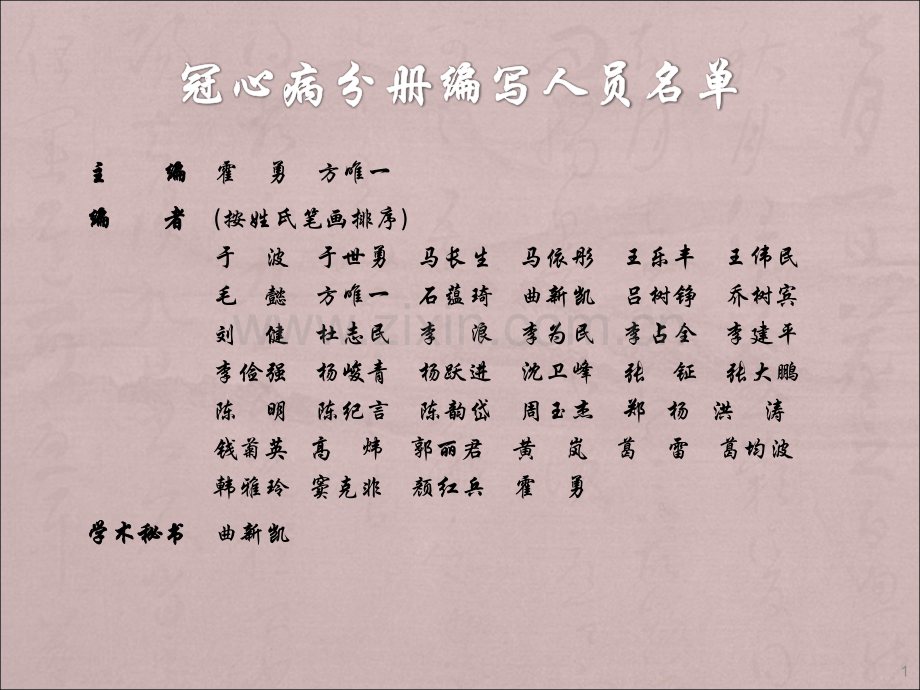 冠心病分册编写人员名单
主 编 霍 勇 方唯一
编 者 (按姓氏笔画排序)
于 波 于世勇 马长生 马依彤 王乐丰 王伟民
毛 懿 方唯一 石蕴琦 曲新凯 吕树铮 乔树宾
刘 健 杜志民 李 浪 李为民 李占全 李建平
李俭强 杨峻青 杨跃进 沈卫峰 张 钲 张大鹏
陈 明 陈纪言 陈韵岱 周玉杰 郑 杨 洪 涛
钱菊英 高 炜 郭丽君 黄 岚 葛 雷 葛均波
韩雅玲 窦克非 颜红兵 霍 勇
学术秘书 曲新凯
www.zixin.com.cn
1